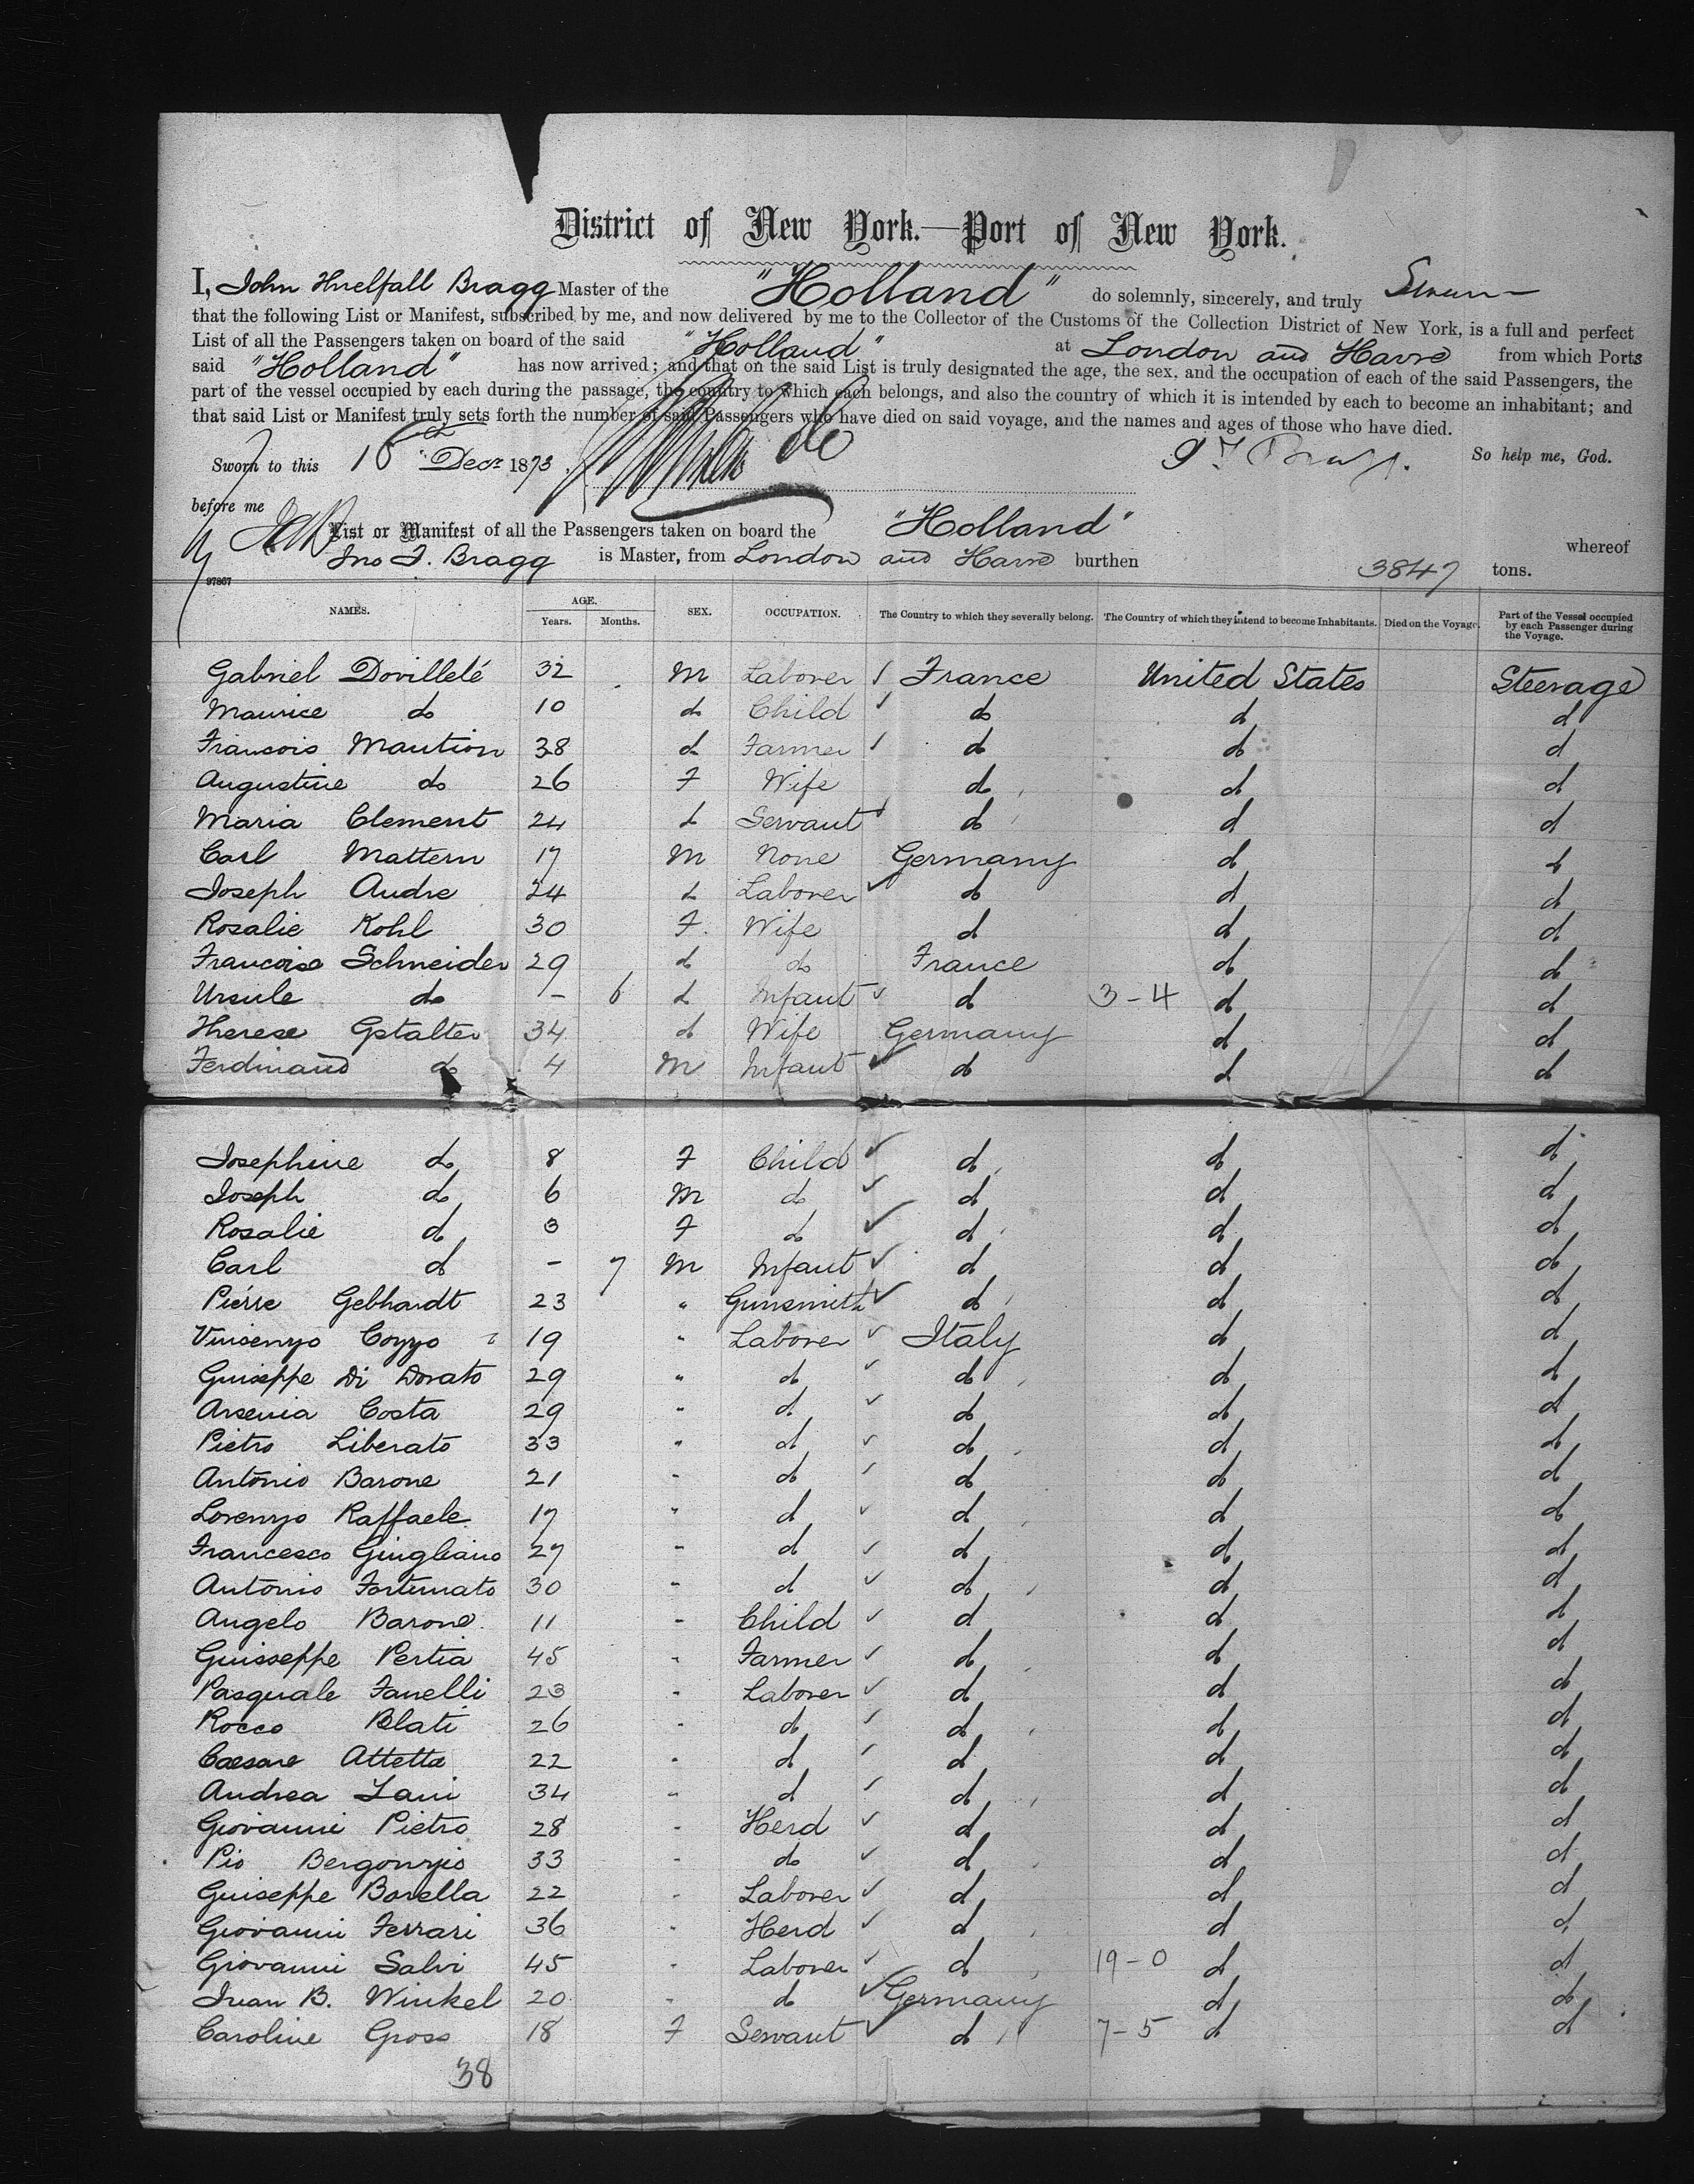 District of New York.—Port of New York.
I, John Thelfall Bragg Master of the "Holland" do solemnly, sincerely, and truly Swear
that the following List or Manifest, subscribed by me, and now delivered by me to the Collector of the Customs of the Collection District of New York, is a full and perfect
List of all the Passengers taken on board of the said "Holland" at London and Havre from which Ports
said "Holland" has now arrived; and that on the said List is truly designated the age, the sex. and the occupation of each of the said Passengers, the
part of the vessel occupied by each during the passage, the country to which each belongs, and also the country of which it is intended by each to become an inhabitant; and
that said List or Manifest truly sets forth the number of said Passengers who have died on said voyage, and the names and ages of those who have died.
Sworn to this 16th Decr 1873. So help me, God.
before me
List or Manifest of all the Passengers taken on board the "Holland" whereof
Jno T. Bragg is Master, from London and Havre burthen 3847 tons.
97867
NAMES. AGE. Years. Months. SEX. OCCUPATION. The Country to which they severally belong. The Country of which they intend to become Inhabitants. Died on the Voyage. Part of the Vessel occupied by each Passenger during the Voyage.
Gabriel Dovilleté 32 M Laborer France United States Steerage
Maurice do 10 do Child do do do
Francois Maution 38 do Farmer do do do
Augustine do 26 F Wife do do do
Maria Clement 24 do Servant do do do
Carl Mattern 17 M None Germany do do
Joseph Andre 24 do Laborer do do do
Rosalie Kohl 30 F. Wife do do do
Francoise Schneider 29 do do France do do
Ursule do - 6 do Infant do 3-4 do do
Therese Gstalter 34 do Wife Germany do do
Ferdinand do 4 M Infant do do do
Josephine do 8 F Child do do do
Joseph do 6 M do do do do
Rosalie do 3 F do do do do
Carl do - 7 M Infant do do do
Pierre Gebhardt 23 " Gunsmith do do do
Vinsenzo Cozzo 19 " Laborer Italy do do
Guiseppe Di Dorato 29 " do do do do
Arsenia Costa 29 " do do do do
Pietro Liberato 33 " do do do do
Antonio Barone 21 " do do do do
Lorenzo Raffaele 17 " do do do do
Francesco Giugliano 27 " do do do do
Antonio Fortunato 30 " do do do do
Angelo Barone. 11 " Child do do do
Guisseppe Pertia 45 " Farmer do do do
Pasquale Fanelli 23 " Laborer do do do
Rocco Blati 26 " do do do do
Caesare Attetta 22 " do do do do
Andrea Lani 34 " do do do do
Giovanni Pietro 28 " Herd do do do
Pio Bergonzio 33 " do do do do
Guiseppe Borella 22 " Laborer do do do
Giovanni Ferrari 36 " Herd do do do
Giovanni Salvi 45 " Laborer do 19-0 do do
Juan B. Winkel 20 " do Germany do do
Caroline Gross 18 F Servant do 7-5 do do
38